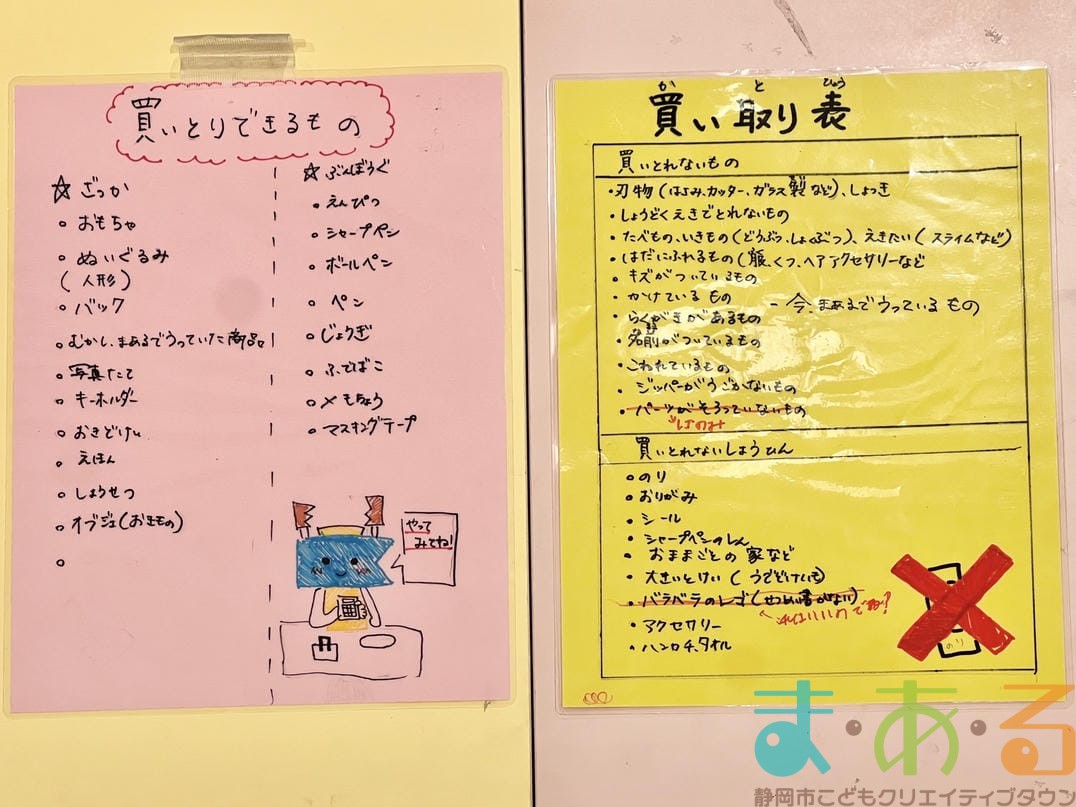 買いとりできるもの
☆ ざっか
。おもちゃ
。ぬいぐるみ
(人形)
。バック
。むかし、まぁるでうっていた商品
。写真たて
。キーホルダー
。おきどけい
。えほん
。しょうせつ
。オブジェ(おきもの)
。
☆ ぶんぼうぐ
。えんぴつ
。シャープペン
。ボールペン
。ペン
。じょうぎ
。ふでばこ
。メモちょう
。マスキングテープ
やって
みてね!
か と ひょう
買い取り表
買いとれないもの
・刃物(はさみ、カッター、ガラス製など)、しょっき
・しょうどくえきでとれないもの
・たべもの、いきもの(どうぶつ、しょくぶつ)、えきたい(スライムなど)
・はだにふれるもの(服、くつ、ヘアアクセサリーなど
・キズがついているもの
・かけているもの
- 今、まぁるでうっているもの
・らくがきがあるもの
・名前がついているもの
・こわれているもの
・ジッパーがうごかないもの
・パーツがそろっていないもの
買いとれないしょうひん
・のり
・おりがみ
・シール
・シャープペンのしん
・おままごとの家など
・大きいとけい(うでどけいも)
・バラバラのレゴ(せつめい書がない)
・アクセサリー
・ハンカチ、タオル
のり
ま・あ・る
静岡市こどもクリエイティブタウン